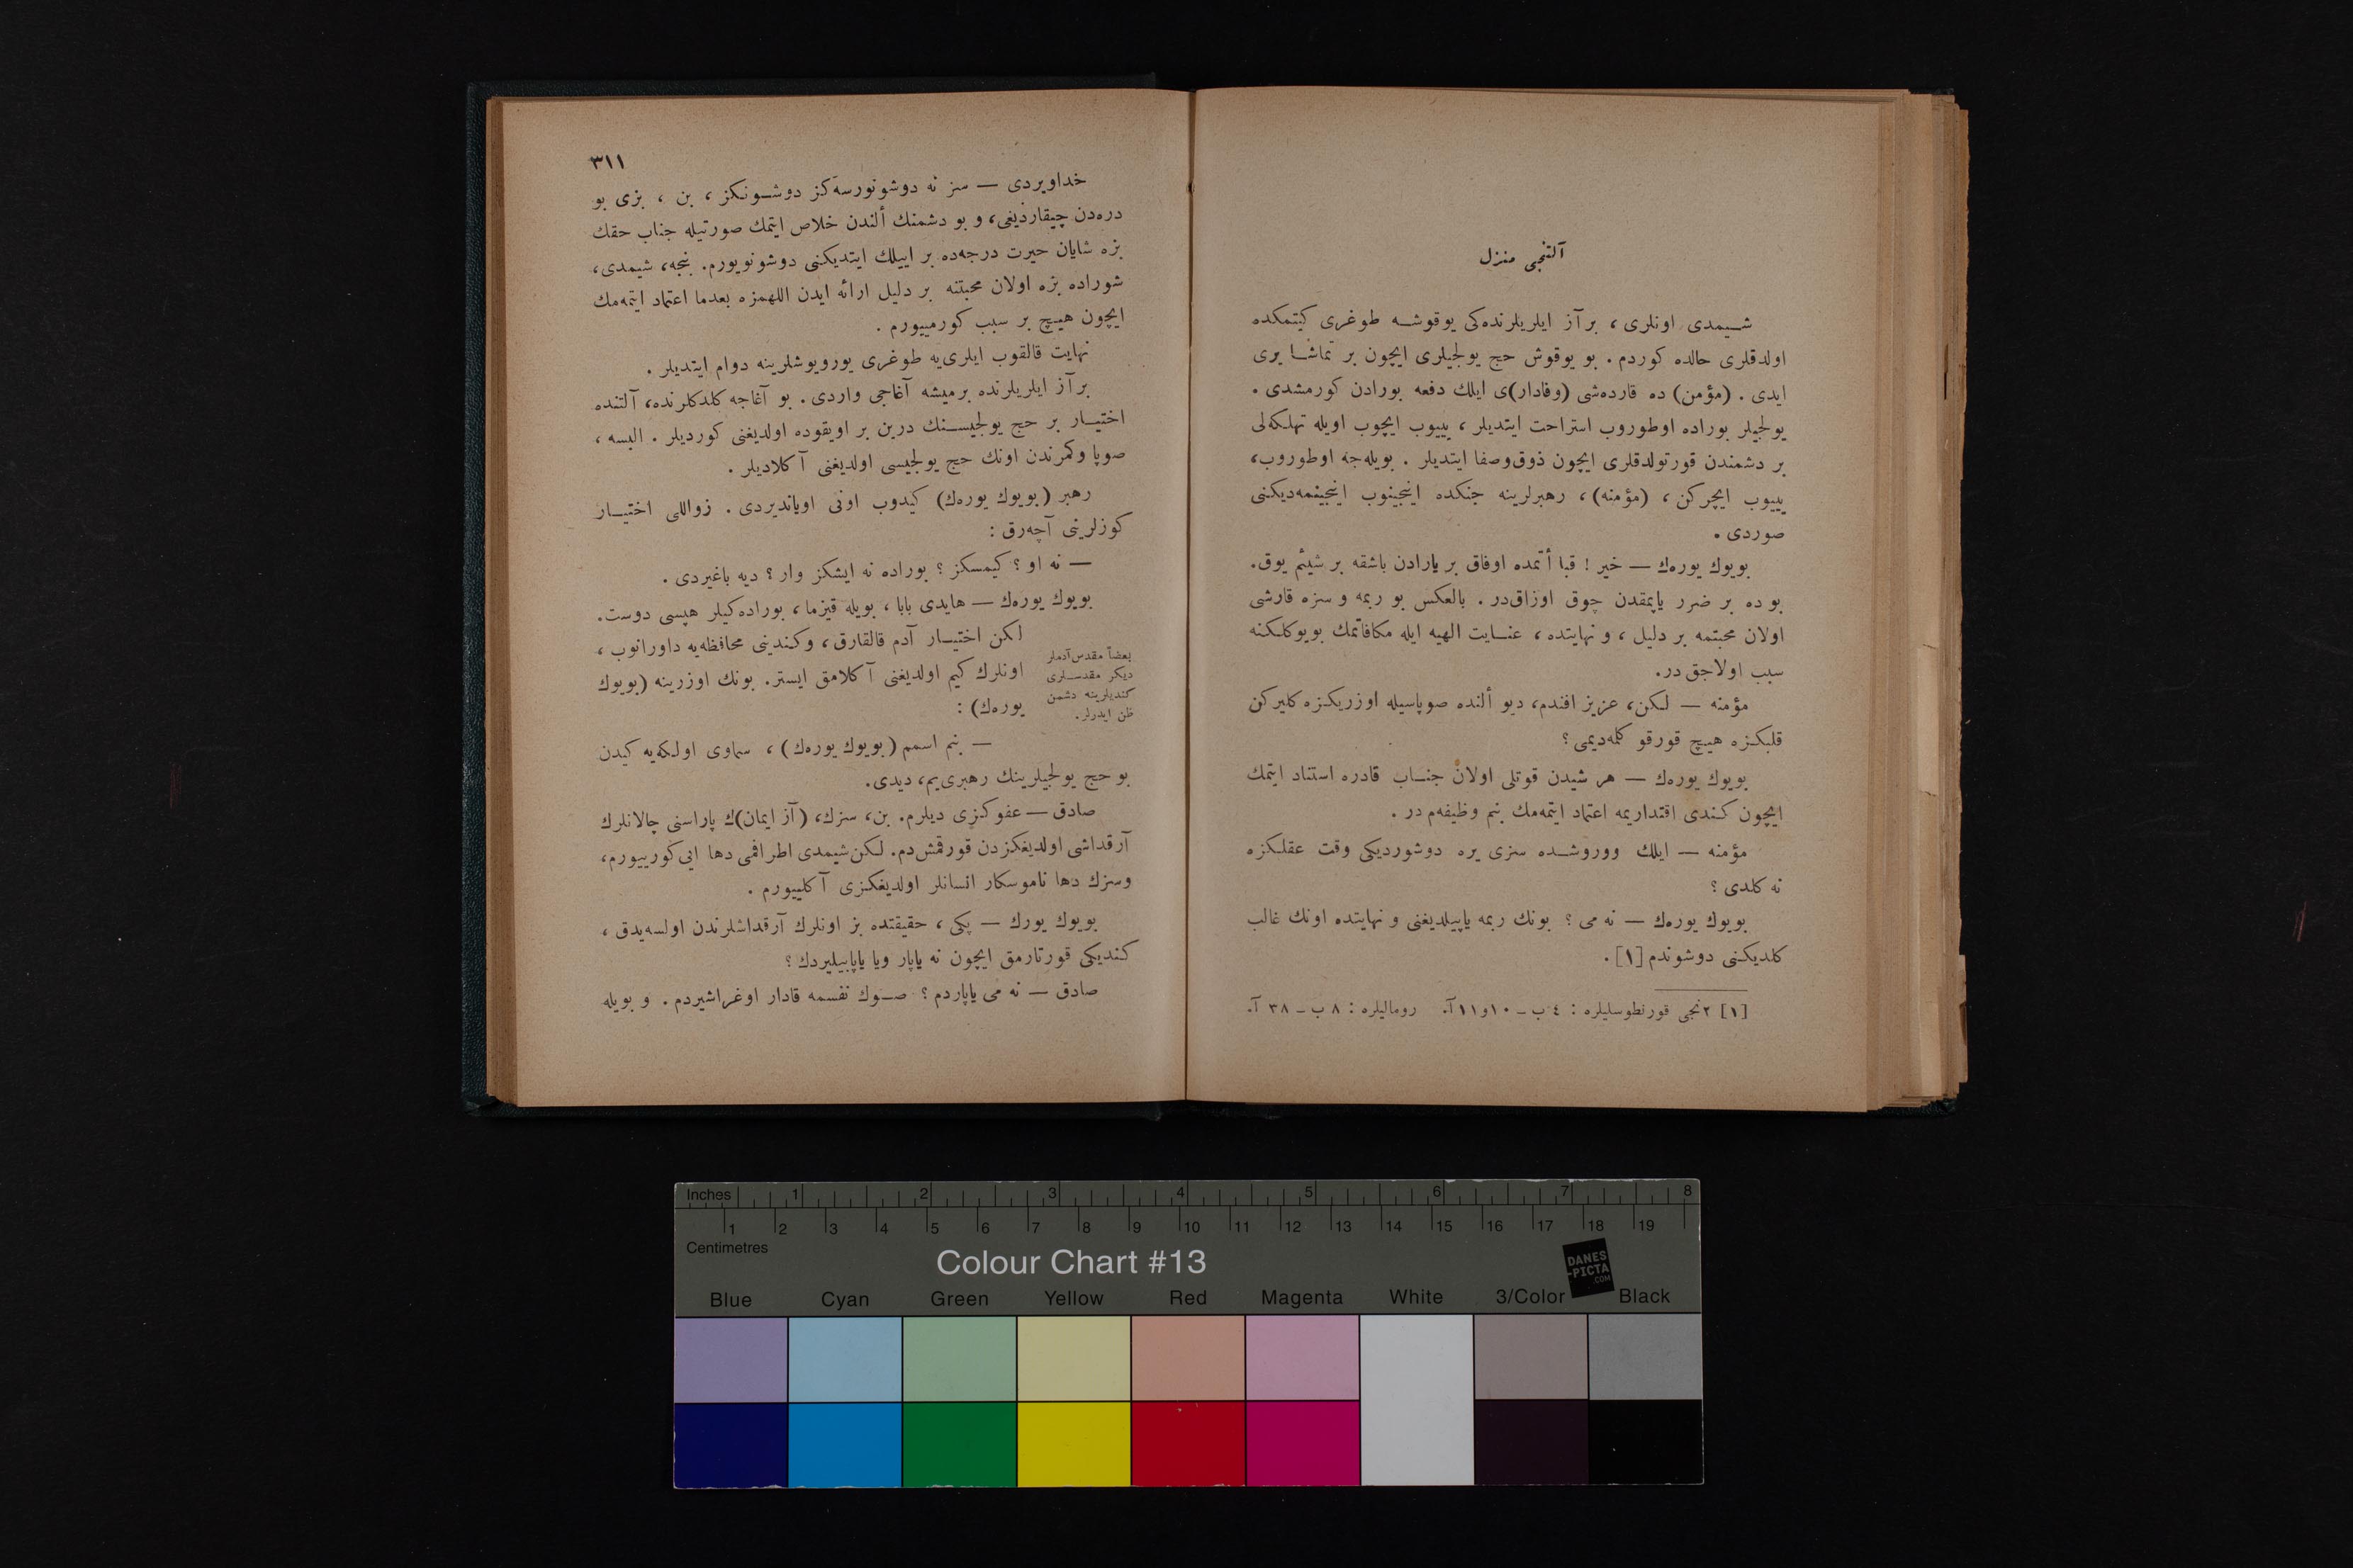 آلتنجی منزل
شیمدی اونلری ، بر آز ایلریلرنده‌کی یوقوشه طوغری کیتمکده
اولدقلری حالده کوردم . بو یوقوش حج یولجیلری ایچون بر تماشا یری
ایدی . (مؤمن) ده قارده‌شی (وفادار)ی ایلك دفعه بورادن کورمشدی .
یولجیلر بوراده اوطوروب استراحت ایتدیلر ، ییوب ایچوب اویله تهلکه‌لی
بر دشمندن قورتولدقلری ایچون ذوق‌وصفا ایتدیلر . بویله‌جه اوطوروب،
ییوب ایچرکن ، (مؤمنه) ، رهبرلرینه جنکده اینجینوب اینجینمه‌دیکنی
صوردی .
بویوك یوره‌ك — خیر ! قبا أتمده اوفاق بر یارادن باشقه بر شیئم یوق.
بو ده بر ضرر یاپمقدن چوق اوزاق‌در . بالعکس بو ربمه و سزه قارشی
اولان محبتمه بر دلیل ، و نهایتده ، عنایت الهیه ایله مکافاتمك بویوکلکنه
سبب اولاجق در.
مؤمنه — لکن، عزیز افندم، دیو ألنده صوپاسیله اوزریکزه کلیرکن
قلبکزه هیچ قورقو کلمه‌دیمی ؟
بویوك یوره‌ك — هر شیدن قوتلی اولان جناب قادره استناد ایتمك
ایچون کندی اقتداریمه اعتماد ایتمه‌مك بنم وظیفه‌م در .
مؤمنه — ایلك ووروشده سزی یره دوشوردیکی وقت عقلکزه
نه کلدی ؟
بویوك یوره‌ك — نه می ؟ بونك ربمه یاپیلدیغنی و نهایتده اونك غالب
کلدیکنی دوشوندم [١] .
[١] ٢نجی قورنطوسلیلره : ٤ ب ـ ١٠و١١ آ. رومالیلره : ٨ ب ـ ٣٨ آ.
٣١١
خداویردی — سز نه دوشونورسه‌کز دوشونکز ، بن ، بزی بو
دره‌دن چیقاردیغی، و بو دشمنك ألندن خلاص ایتمك صورتیله جناب حقك
بزه شایان حیرت درجه‌ده بر اییلك ایتدیکنی دوشونویورم. بنجه، شیمدی،
شوراده بزه اولان محبتنه بر دلیل ارائه ایدن اللهمزه بعدما اعتماد ایتمه‌مك
ایچون هیچ بر سبب کورمییورم .
نهایت قالقوب ایلری‌یه طوغری یورویوشلرینه دوام ایتدیلر .
بر آز ایلریلرنده برمیشه آغاجی واردی . بو آغاجه کلدکلرنده، آلتنده
اختیار بر حج یولجیسنك درین بر اویقوده اولدیغنی کوردیلر . البسه ،
صوپا وکمرندن اونك حج یولجیسی اولدیغنی آکلادیلر .
رهبر (بویوك یوره‌ك) کیدوب اونی اویاندیردی . زواللی اختیار
کوزلرینی آچه‌رق :
— نه او ؟ کیمسکز ؟ بوراده نه ایشکز وار ؟ دیه باغیردی .
بویوك یوره‌ك — هایدی بابا ، بویله قیزما ، بوراده‌کیلر هپسی دوست.
لکن اختیار آدم قالقارق ، وکندینی محافظه‌یه داورانوب ،
اونلرك کیم اولدیغنی آکلامق ایستر. بونك اوزرینه (بویوك
یوره‌ك) :
بعضاً مقدس‌آدملر
دیکر مقدسلری
کندیلرینه دشمن
ظن ایدرلر.
— بنم اسمم (بویوك یوره‌ك) ، سماوی اولکه‌یه کیدن
بو حج یولجیلرینك رهبری‌یم، دیدی.
صادق — عفوکزی دیلرم. بن، سزك، (آز ایمان)ك پاراسنی چالانلرك
آرقداشی اولدیغکزدن قورقمش‌دم. لکن شیمدی اطرافمی دها ایی کورییورم،
وسزك دها ناموسکار انسانلر اولدیغکزی آکلییورم .
بویوك یورك — پکی ، حقیقتده بز اونلرك آرقداشلرندن اولسه‌یدق ،
کندیکی قورتارمق ایچون نه یاپار ویا یاپابیلیردك ؟
صادق — نه می یاپاردم ؟ صوك نفسمه قادار اوغراشیردم . و بویله
Inches 1 2 3 4 5 6 7 8
1 2 3 4 5 6 7 8 9 10 11 12 13 14 15 16 17 18 19
Centimetres
Colour Chart #13
DANES
-PICTA
.COM
Blue Cyan Green Yellow Red Magenta White 3/Color Black